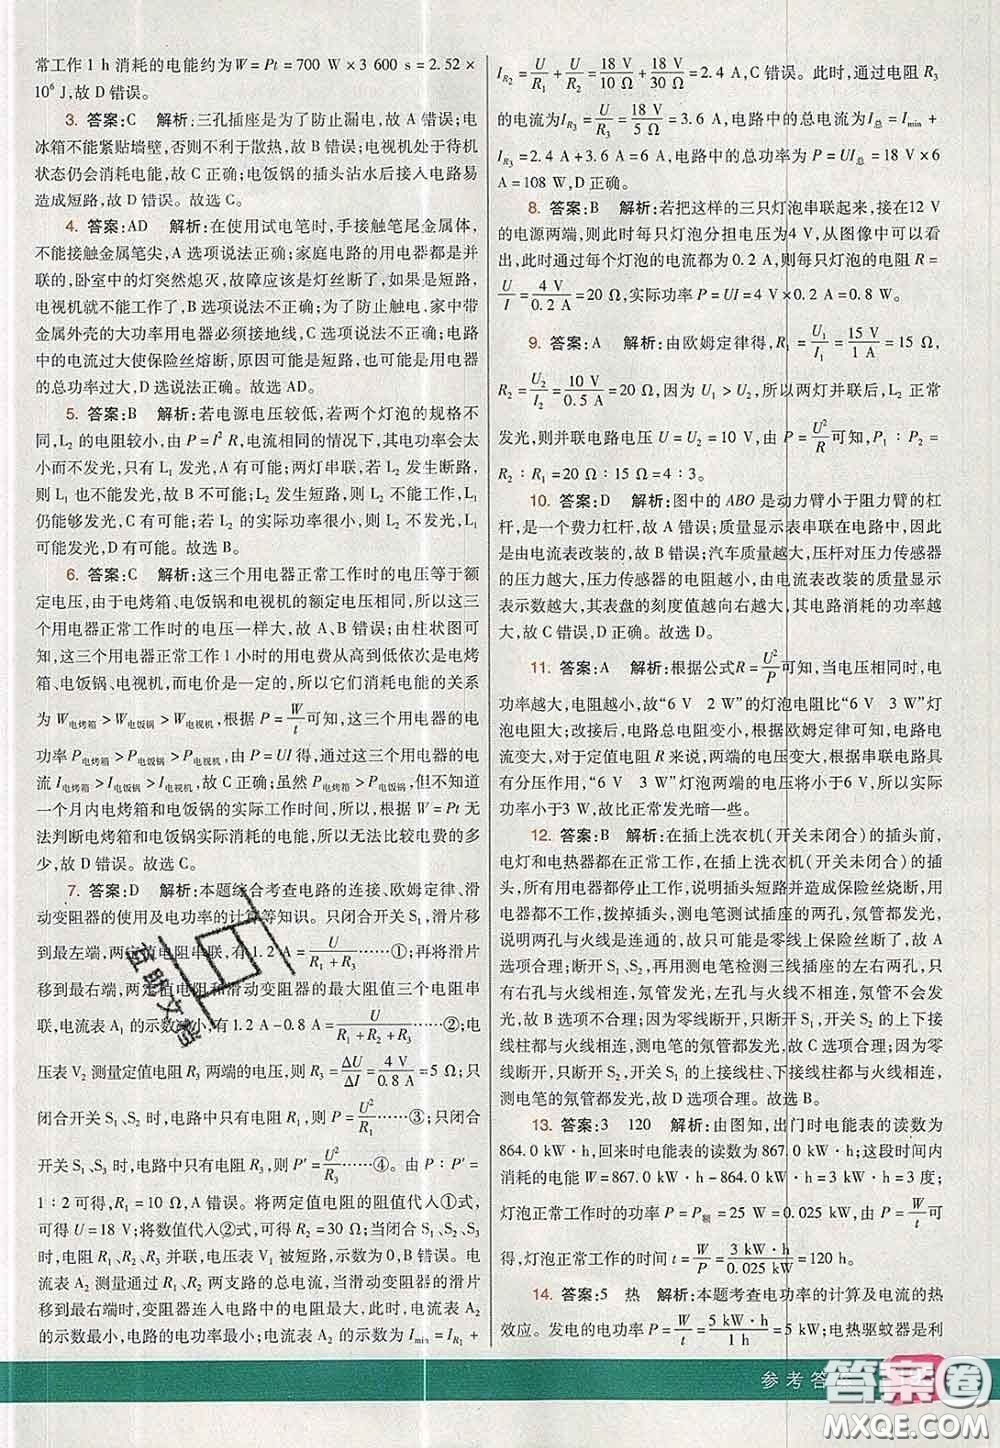 常工作 1 h 消耗的电能约为 W=Pt=700 W×3 600 s=2.52×
10⁶ J,故 D 错误。
3. 答案:C 解析:三孔插座是为了防止漏电,故 A 错误;电
冰箱不能紧贴墙壁,否则不利于散热,故 B 错误;电视机处于待机
状态仍会消耗电能,故 C 正确;电饭锅的插头沾水后接入电路易
造成短路,故 D 错误。故选 C。
4. 答案:AD 解析:在使用试电笔时,手接触笔尾金属体,
不能接触金属笔尖,A 选项说法正确;家庭电路的用电器都是并
联的,卧室中的灯突然熄灭,故障应该是灯丝断了,如果是短路,
电视机就不能工作了,B 选项说法不正确;为了防止触电,家中带
金属外壳的大功率用电器必须接地线,C 选项说法不正确;电路
中的电流过大使保险丝熔断,原因可能是短路,也可能是用电器
的总功率过大,D 选说法正确。故选 AD。
5. 答案:B 解析:若电源电压较低,若两个灯泡的规格不
同,L₂ 的电阻较小,由 P=I²R,电流相同的情况下,其电功率会太
小而不发光,只有 L₁ 发光,A 有可能;两灯串联,若 L₂ 发生断路,
则 L₁ 也不发光,B 不可能;L₂ 发生短路,则 L₂ 不能发光,L₁
仍能够发光,C 有可能;若 L₂ 的实际功率很小,则 L₂ 不发光,L₁
发光,D 有可能。故选 B。
6. 答案:C 解析:这三个用电器正常工作时的电压等于额
定电压,由于电烤箱、电饭锅和电视机的额定电压相同,所以,这三
个用电器正常工作时的电压一样大,故 A、B 错误;由柱状图可
知,这三个用电器正常工作 1 小时的用电费从高到低依次是电烤
箱、电饭锅、电视机,而电价是一定的,所以它们消耗电能的关系
为 W电烤箱>W电饭锅>W电视机,根据 P=W/t 可知,这三个用电器的电
功率 P电烤箱>P电饭锅>P电视机,由 P=UI 得,通过这三个用电器的电
流 I电烤箱>I电饭锅>I电视机,故 C 正确;虽然 P电烤箱>P电饭锅,但不知道
一个月内电烤箱和电饭锅的实际工作时间,所以,根据 W=Pt 无
法判断电烤箱和电饭锅实际消耗的电能,所以无法比较电费的多
少,故 D 错误。故选 C。
7. 答案:D 解析:本题综合考查电路的连接、欧姆定律、滑
动变阻器的使用及电功率的计算等知识。只闭合开关 S₁,滑片移
到最左端,两定值电阻串联,有 1.2 A=U/(R₁+R₃)……①;再将滑片
移到最右端,两定值电阻和滑动变阻器的最大阻值三个电阻串
联,电流表 A₁ 的示数减小,有 1.2 A-0.8 A=U/(R₁+R₂+R₃)……②;电
压表 V₂ 测量定值电阻 R₃ 两端的电压,则 R₃=ΔU/ΔI=4 V/0.8 A=5 Ω;只
闭合开关 S₁、S₂ 时,电路中只有电阻 R₁,则 P=U²/R₁……③;只闭合
S₁、S₃ 时,电路中只有电阻 R₃,则 P′=U²/R₃……④。由 P∶P′=
1∶2 可得,R₁=10 Ω,A 错误。将两定值电阻的阻值代入①式,
可得 U=18 V;将数值代入②式,可得 R₂=30 Ω;当闭合 S₁、S₂、S₃
时,电阻 R₁、R₂、R₃ 并联,电压表 V₁ 被短路,示数为 0,B 错误。电
流表 A₂ 测量通过 R₁、R₂ 两支路的总电流,当滑动变阻器的滑片
移到最右端时,变阻器连入电路中的电阻最大,此时,电流表 A₂
的示数最小,电路的电功率最小,有最小电流为 Imin=IR₁+
IR₂=U/R₁+U/R₂=18 V/10 Ω+18 V/30 Ω=2.4 A,C 错误。此时,通过电阻 R₃
的电流为 IR₃=U/R₃=18 V/5 Ω=3.6 A,电路中的总电流为 I总=Imin+
IR₃=2.4 A+3.6 A=6 A,电路中的总功率为 P=UI总=18 V×6
A=108 W,D 正确。
8. 答案:B 解析:若把这样的三只灯泡串联起来,接在 12 V
的电源两端,则此时每只灯泡分担电压为 4 V,从图像中可以看
出,此时通过每个灯泡的电流都为 0.2 A,则每只灯泡的电阻 R=
U/I=4 V/0.2 A=20 Ω,实际功率 P=UI=4 V×0.2 A=0.8 W。
9. 答案:A 解析:由欧姆定律得,R₁=U₁/I₁=15 V/1 A=15 Ω,
R₂=U₂/I₂=10 V/0.5 A=20 Ω,因为 U₁>U₂,所以两灯并联后,L₂ 正常
发光,则并联电路电压 U=U₂=10 V,由 P=U²/R可知,P₁∶P₂=
R₂∶R₁=20 Ω∶15 Ω=4∶3。
10. 答案:D 解析:图中的 ABO 是动力臂小于阻力臂的杠
杆,是一个费力杠杆,故 A 错误;质量显示表串联在电路中,因此
是由电流表改装的,故 B 错误;汽车质量越大,压杆对压力传感器
的压力越大,压力传感器的电阻越小,由电流表改装的质量显示
表示数越大,其表盘的刻度值越向右越大,其电路消耗的功率越
大,故 C 错误,D 正确。故选 D。
11. 答案:A 解析:根据公式 R=U²/P可知,当电压相同时,电
功率越大,电阻越小,故“6 V 2 W”的灯泡电阻比“6 V 3 W”灯
泡电阻大;改接后,电路总电阻变小,根据欧姆定律可知,电路电
流变大,对于定值电阻 R 来说,两端的电压变大,根据串联电路具
有分压作用,“6 V 3 W”灯泡两端的电压将小于 6 V,所以实际
功率小于 3 W,故比正常发光暗一些。
12. 答案:B 解析:在插上洗衣机(开关未闭合)的插头前,
电灯和电热器都在正常工作,在插上洗衣机(开关未闭合)的插
头,所有用电器都停止工作,说明插头短路并造成保险丝烧断,用
电器都不工作,拨掉插头,测电笔测试插座的两孔,氖管都发光,
说明两孔与火线是连通的,故只可能是零线上保险丝断了,故 A
选项合理;断开 S₁、S₂,再用测电笔检测三线插座的左右两孔,只
有右孔与火线相连,氖管发光,左孔与火线不相连,氖管不会发
光,故 B 选项不合理;因为零线断开,只断开 S₁,开关 S₁ 的上下接
线柱都与火线相连,测电笔的氖管都发光,故 C 选项合理;因零线
断开,只断开 S₂,开关 S₁ 的上接线柱、下接线柱都与火线相连,则
测电笔的氖管都发光,故 D 选项合理。故选 B。
13. 答案:3 120 解析:由图知,出门时电能表的读数为
864.0 kW·h,回来时电能表的读数为 867.0 kW·h,这段时间内
消耗的电能 W=867.0 kW·h-864.0 kW·h=3 kW·h=3 度;
灯泡正常工作时的功率 P=P额=25 W=0.025 kW,由 P=W/t可
得,灯泡正常工作的时间 t=W/P=3 kW·h/0.025 kW=120 h。
14. 答案:5 热 解析:本题考查电功率的计算及电流的热
效应。发电的电功率 P=W/t=5 kW·h/1 h=5 kW;电热驱蚊器是利
参考答案
答案圈
MXQE.COM